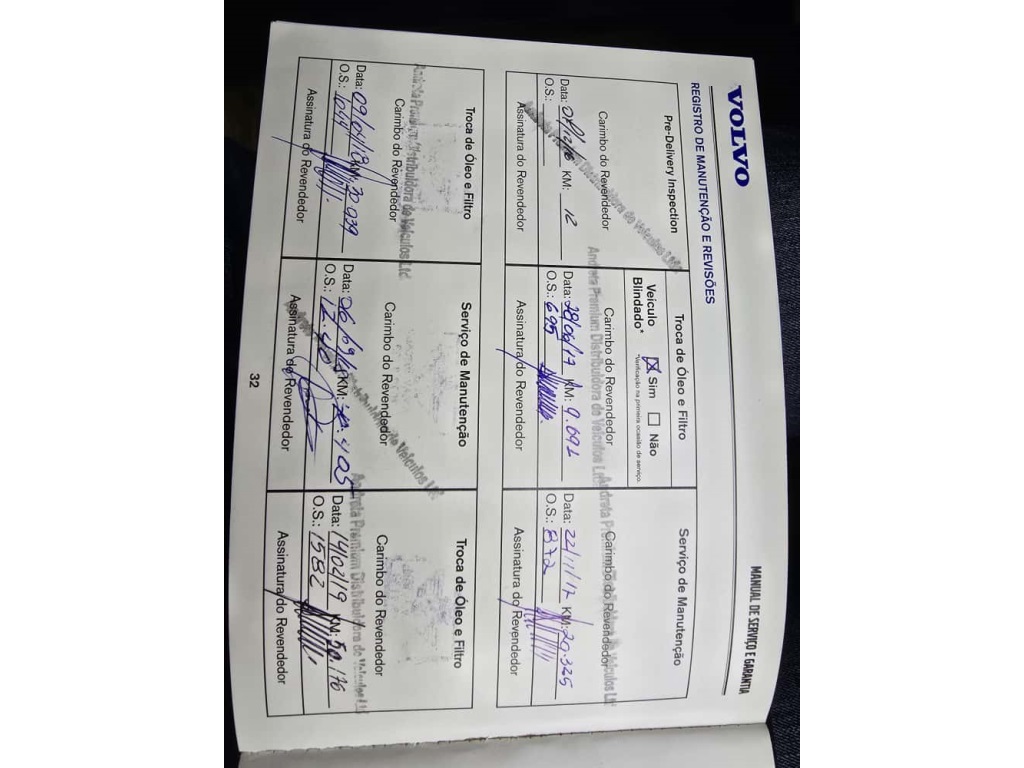 MANUAL DE SERVIÇO E GARANTIA
VOLVO
REGISTRO DE MANUTENÇÃO E REVISÕES
Pre-Delivery Inspection
Carimbo do Revendedor
Distribuidora de Veículos Ltd
Data: KM: 12
O.S.:
Assinatura do Revendedor
Troca de Óleo e Filtro
Veículo
Blindado*
Sim
Não
*Verificação na primeira ocasião de serviço.
Carimbo do Revendedor
Andreta Premium Distribuidora de Veículos Lt
Data: 28/06/17 KM: 9.692
O.S.: 695
Assinatura do Revendedor
Serviço de Manutenção
Carimbo do Revendedor
Data: 22/11/17 KM: 20.325
O.S.: 872
Assinatura do Revendedor
Troca de Óleo e Filtro
Carimbo do Revendedor
Andreta Premium Distribuidora de Veículos Ltd
Data: 09/04/18 KM: 30 939
O.S.:
Assinatura do Revendedor
Serviço de Manutenção
Carimbo do Revendedor
Distribuidora de Veículos Ltd
Data: KM:
O.S.:
Assinatura do Revendedor
Troca de Óleo e Filtro
Carimbo do Revendedor
Andreta Premium Distribuidora de Veículos Ltd
Data: 14/02/19 KM: 50.176
O.S.: 1582
Assinatura do Revendedor
32